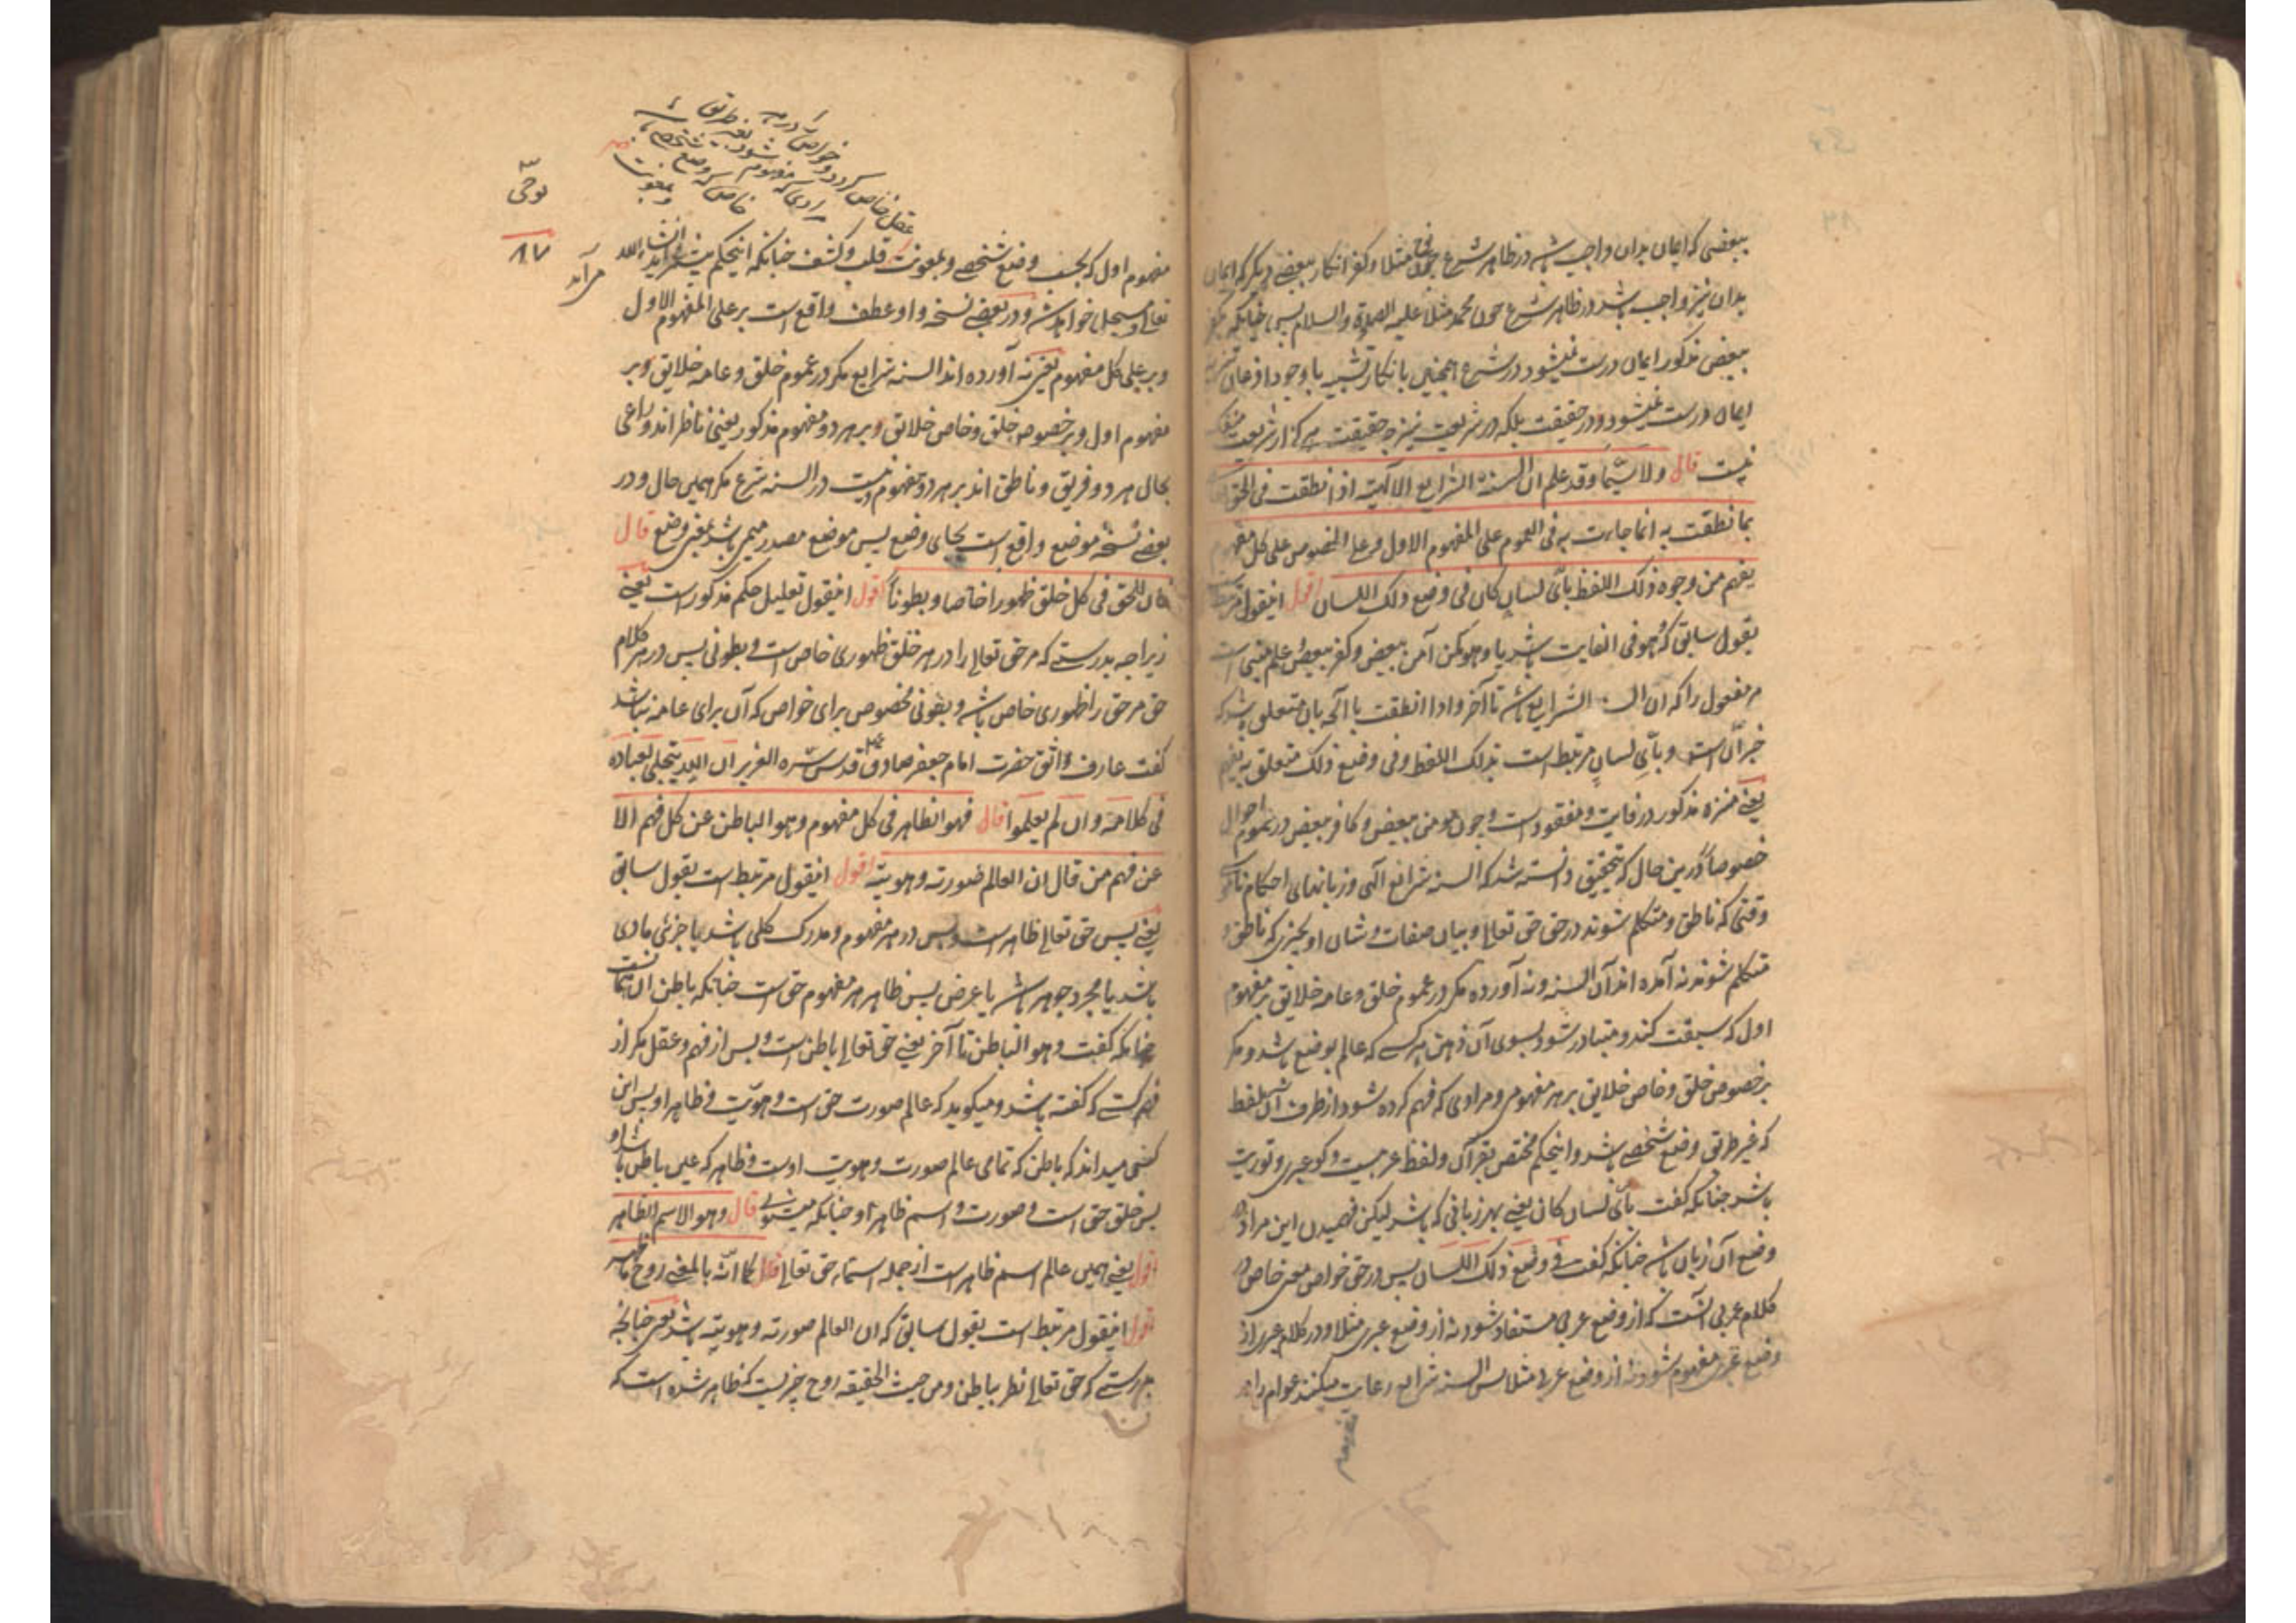 ببعضی که ایمان بدان واجب باشد در ظاهر شرع چون نوح مثلا و کفر و انکار ببعضے دیگر که ایمان
بدان نیز واجب باشد در ظاهر شرع چون محمد مثلا علیه الصلوة والسلام پس چنانکه
ببعض مذکور ایمان درست نمیشود در شرع همچنین بانکار تشبیه با وجود اذعان
ایمان درست نمیشود در حقیقت بلکه در شریعت نیز چه حقیقت هرگز از شریعت منفک
نیست قال ولا سیما وقد علم ان السنة الشرایع الالهیة اذا نطقت فی الحق تعالی
بما نطقت به انما جاءت به فی العموم علی المفهوم الاول و علی الخصوص علی کل مفهوم
یفهم من وجوه ذلک اللفظ بأی لسان کان فی وضع ذلک اللسان اقول اینقول مرتبط
بقول سابق که هو فی الغایت باشد یا وهو کمن آمن ببعض وکفر ببعض علم مبنی است
مر مفعول را که ان السنة الشرایع باشد تا آخر و اذا نطقت با آنچه بان متعلق باشد که
خبر انّ است و بأیّ لسان مرتبط است بذلک اللفظ و فی وضع ذلک متعلق به یفهم
یعنے منزه مذکور در غایت مفقود است و چون مومن ببعض و کافر ببعض در عموم احوال
خصوصاً درین حال که بتحقیق دانسته شد که السنه شرایع الهی و زبانهای احکام
وقتی که ناطق و متکلم شوند در حق حق تعالے و بیان صفات و شان او بچیزی که ناطق و
متکلم شوند نه آمده اند آن السنه و نه آورده مگر در عموم خلق و عامه خلایق بر مفهوم
اول که سبقت کند و متبادر شود بسوی آن ذهن هر کسے که عالم بوضع باشد و مگر
بر خصوص خلق و خاص خلایق بر هر مفهومی و مرادی که فهم کرده شود از طرف آن لفظ
که غیر طریق وضع شخصے باشد و اینحکم مختص بقرآن و لفظ عربیست و گو عبری و توریت
باشد چنانکه گفت بأیّ لسان کان یعنے بهر زبانی که باشد لیکن فهمیدن این مراد در
وضع آن زبان باشد چنانکه گفت فی وضع ذلک اللسان پس در حق خواص معنی خاص در
کلام عربی آنست که از وضع عربی مستفاد شود نه از وضع عبری مثلا و در کلام عبری از
وضع عبری مفهوم شود نه از وضع عربی مثلا پس السنه شرایع رعایت میکنند عوام را در
مفهوم
نوحی
٨٧
مفهوم اول که بحسب وضع شخصے و بمعونت قلب و کشف چنانکه اینحکم بیشتر آید ان شاء الله
تعالے و مسجل خواهد شد و در بعضے نسخه واو عطف واقع است بر علی المفهوم الاول
و بر علی کل مفهوم یعنی نه آورده اند السنه شرایع مگر در عموم خلق و عامه خلایق و بر
مفهوم اول و بر خصوص خلق و خاص خلایق و بر هر دو مفهوم مذکور یعنی ناظر اند و راعی
بحال هر دو فریق و ناطق اند بر هر دو مفهوم و نیست در السنه شرع مگر همین حال و در
بعضے نسخه موضع واقع است بجای وضع پس موضع مصدر میمی باشد بمعنی وضع قال
فان للحق فی کل خلق ظهورا خاصا و بطونا اقول اینقول تعلیل حکم مذکور است یعنے
زیراچه بدرستے که مر حق تعالے را در هر خلق ظهوری خاص است و بطونی پس در هر کلام
حق مر حق را ظهوری خاص باشد و بطونی مخصوص برای خواص که آن برای عامه نباشد
گفت عارف واثق حضرت امام جعفر صادق قدس سره العزیز ان الله یتجلی لعباده
فی کلامه وان لم یعلموا قال فهو الظاهر فی کل مفهوم وهو الباطن عن کل فهم الا
عن فهم من قال ان العالم صورته وهویته اقول اینقول مرتبط است بقول سابق
یعنے پس حق تعالے ظاهر است و بس در هر مفهوم و مدرک کلی باشد یا جزئی مادی
باشد یا مجرد جوهر باشد یا عرض پس ظاهر هر مفهوم حق است چنانکه باطن آن
چنانکه گفت وهو الباطن تا آخر یعنے حق تعالے باطن است و بس از فهم و عقل مگر از
فهم کسے که گفته باشد و میگوید که عالم صورت حق است و هویت ظاهر او پس این
کس میداند که باطن که تمامی عالم صورت و هویت اوست و ظاهر که عین باطن باشد او
پس خلق حق است و صورت و اسم ظاهر او چنانکه میشنوی قال وهو الاسم الظاهر
اقول یعنے همین عالم اسم ظاهر است از جمله اسماء حق تعالے قال کما انّه بالمعنی روح ما ظهر
اقول اینقول مرتبط است بقول سابق که ان العالم صورته وهویته باشد یعنی چنانچه
بدرستے که حق تعالے نظر بباطن و من حیث الحقیقه روح چیزیست که ظاهر شده است که